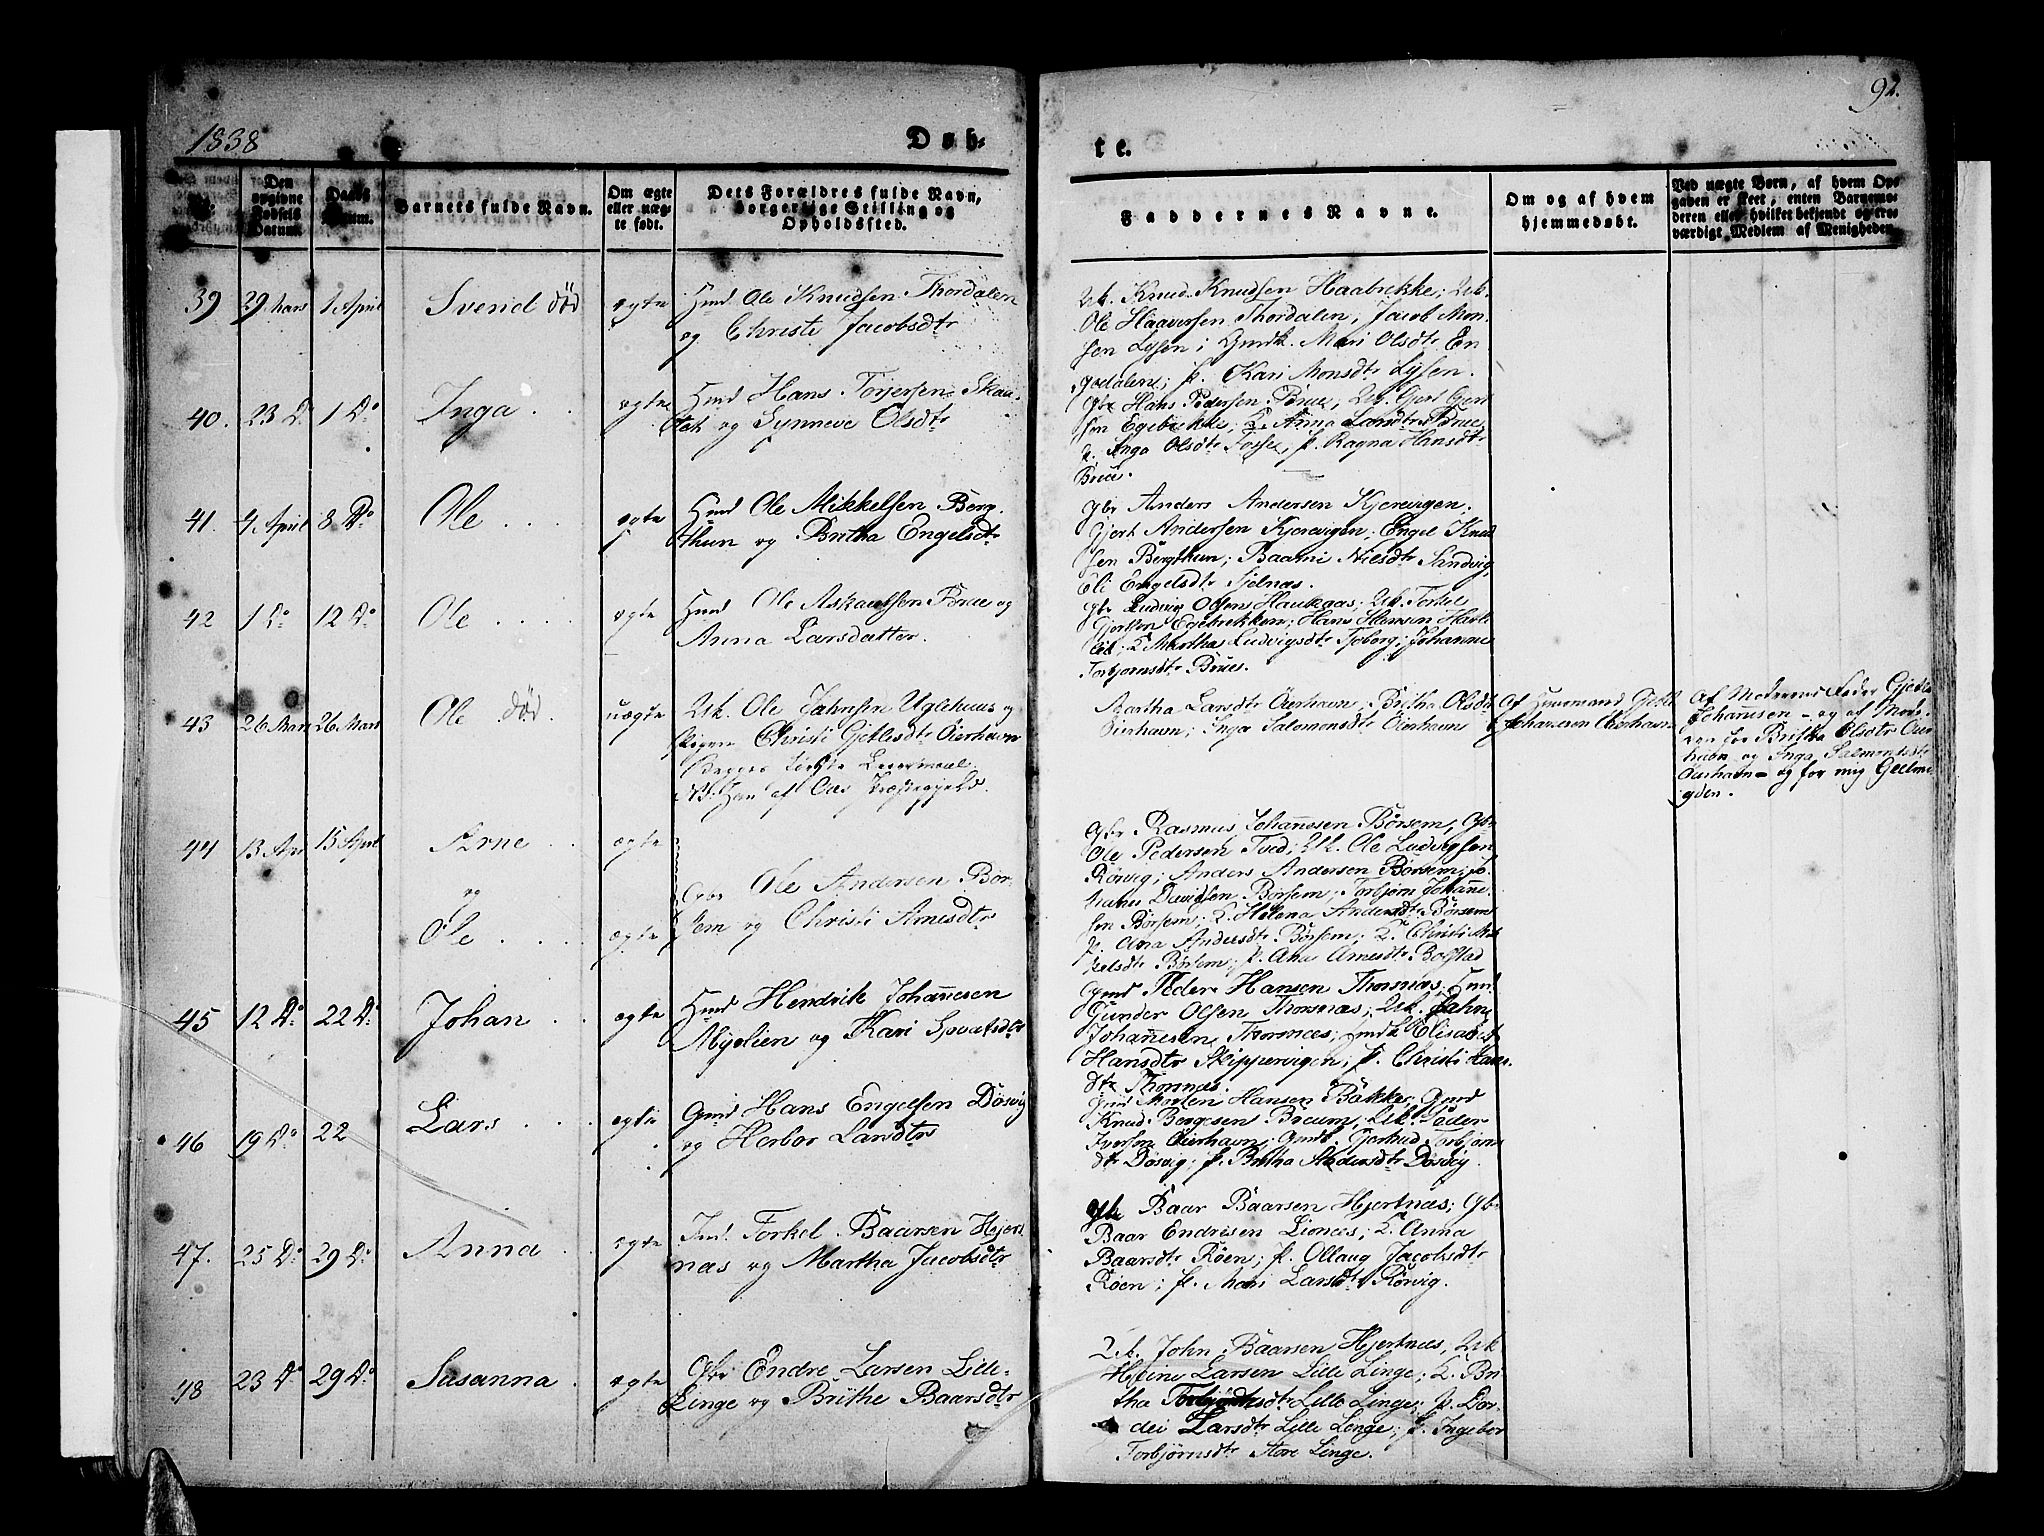 92.
1838
Døb-
te.
Den opgivne Fødsels Datum.
Daabs Datum.
Barnets fulde Navn.
Om ægte eller uægte født.
Dets Forældres fulde Navn, borgerlige Stilling og Opholdsted.
Faddernes Navne.
Om og af hvem hjemmedøbt.
Ved uægte Børn, af hvem Opgaven er skeet, enten Barnemoderen eller hvilket bekjendt og troværdigt Medlem af Menigheden.
39 29 Mars 1 April Svend død ægte Huusmd Ole Knudsen Thordalen
og Christi Jacobsdtr
Uk. Knud Knudsen Haabrekke; Uk.
Ole Haaversen Thordalen; Jacob Mon-
sen Lysen; Gmdk. Mari Olsdtr En-
gedalene; p. Kari Monsdtr Lysen.
40. 23 Do 1 Do Inga ægte Huusmd Hans Torgersen
og Synneve Olsdtr
Gbr Hans Pedersen Brue; Uk. Gjert Gjert-
sen Egebrekke; K. Anna Larsdtr Brue;
p. Inga Olsdtr Fosse; p. Ragna Hansdtr
Brue.
41. 4 April 8 Do Ole ægte Huusmd Ole Mikkelsen Berg-
thun og Britha Engelsdtr
Gbr Anders Andersen Kjerevigen,
Gjert Andersen Kjerevigen; Engel Knud-
sen Bergthun; Baarni Nielsdtr Sandvig,
Eli Engelsdtr Sjelnæs.
42 1 Do 12 Do Ole ægte Huusmd Ole Askaulsen Brue og
Anna Larsdatter.
Gbr Ludvig Olsen Haukaas; Uk. Torkel
Gjertsen Egebrekken; Hans Hansen
K. Martha Ludvigsdtr Tjoborg; Johanne
Torbjørnsdtr Brues.
43 26 Mars 26 Mars Ole død. uægte Uk. Ole Jahnsen Uglehuus og
Pigen Christi Gjetlesdtr Øierhavn
Begges første Leiermaal.
NB. Han af Præstegjeld.
Martha Larsdtr Øierhavn, Britha Olsdtr
Øierhavn; Inga Salomonsdtr Øierhavn
Af Huusmand Gjetle
Johannesen Øierhavn
Af Moderens Fader Gjetle
Johannesen - og af Mode-
ren for Britha Olsdtr Øier-
havn og Inga Salmonsdtr
Øierhavn - og for mig
44 13 Apr 15 April Arne ægte
og
Ole ægte
Gbr Ole Andersen Bør-
sem og Christi Arnesdtr
Gbr Rasmus Johannesen Børsem, Gbr
Ole Pedersen Tved; Uk. Ole Ludvigsen
Rørvig; Anders Andersen Børsem; Jo-
hannes Davidsen Børsem; Torbjørn Johanne-
sen Børsem; K. Helena Andersdtr Børsem
p. Ana Andersdtr Børsem; K. Christi Mik-
kelsdtr Børsem; p. Ana Arnesdtr Bogstad
45 12 Do 22 Do Johan ægte Huusmd Hendrik Johannesen
Myrlien og Kari Sjvatsdtr
Gmd Peder Hansen Thornæs, Huusmd
Gunder Olsen Thornæs; Uk. Jahn
Johannesen Thornæs; Gmdk Elisabet
Hansdtr Skippervigen; p. Christi Hans-
dtr Thornæs.
46 19 Do 22 Lars ægte Gmd Hans Engelsen Døsvig
og Herbor Larsdtr
Gmd Morten Hansen Bakker, Gmd
Knud Børgesen Breum, Uk. Peder
Iversen Øierhavn; Gmdk Gjertrud Torbjørns-
dtr Døsvig; p. Britha Andersdtr Døsvig.
47. 25 Do 29 Do Anna ægte Ind. Torkel Baarsen Hjert-
næs og Martha Jacobsdtr
Gbr Baar Baarsen Hjertnæs; Gbr
Baar Endresen Lionæs; K. Anna
Baarsdtr Røen; p. Ollaug Jacobsdtr
Røen; p. Mari Larsdtr Rørvig.
48 23 Do 29 Do Susanna ægte Gbr Endre Larsen Lille
Linge og Brithe Baarsdtr
Uk. John Baarsen Hjertnæs, Uk
Heine Larsen Lille Linge; K. Bri-
tha Torbjørnsdtr Lille Linge; p. Dor-
dei Larsdtr Lille Linge; p. Ingebor
Torbjørnsdtr Store Linge.